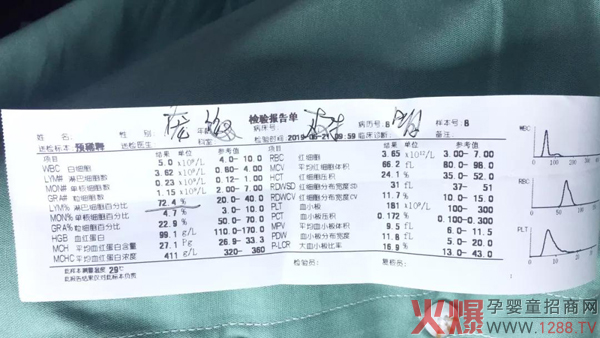 检验报告单
姓 名: 性 别: 年龄 病床号: 病历号: 8 样本号: 8
送检标本 预稀释 送检医生: 科室 检验时间 2019-06-21 09:59 临床诊断: 备注:
项目 结果 单位 参考值 项目 结果 单位 参考值
WBC 白细胞 5.0 x10⁹/L 4.0- 10.0 RBC 红细胞 3.65 x10¹²/L 3.00- 7.00
LYM# 淋巴细胞数 3.62 x10⁹/L 0.80- 4.00 MCV 平均红细胞体积 66.2 fL 80.0- 98.0
MON# 单核细胞数 0.23 x10⁹/L 0.12- 1.00 HCT 红细胞压积 24.1 % 35.0- 52.0
GRA# 粒细胞数 1.15 x10⁹/L 2.00- 7.00 RDWSD 红细胞分布宽度SD 31 fL 37- 51
LYM% 淋巴细胞百分比 72.4 % 20.0- 40.0 RDWCV 红细胞分布宽度CV 11.7 % 10.0- 15.0
MON% 单核细胞百分比 4.7 % 3.0- 10.0 PLT 血小板 181 x10⁹/L 100- 300
GRA% 粒细胞百分比 22.9 % 50.0- 70.0 PCT 血小板压积 0.172 % 0.100-0.300
HGB 血红蛋白 99.1 g/L 110.0-170.0 MPV 平均血小板体积 9.5 fL 6.0- 11.5
MCH 平均血红蛋白含量 27.1 Pg 26.9- 33.3 PDW 血小板分布宽度 11.8 fL 5.0- 20.0
MCHC 平均血红蛋白浓度 411 g/L 320- 360 P-LCR 大血小板比率 16.9 % 13.0- 43.0
此样本测量温度 29℃
此报告结果仅对此标本负责 检验员: 审核员:
WBC
RBC
PLT
火爆 孕婴童招商网
www.1288.TV